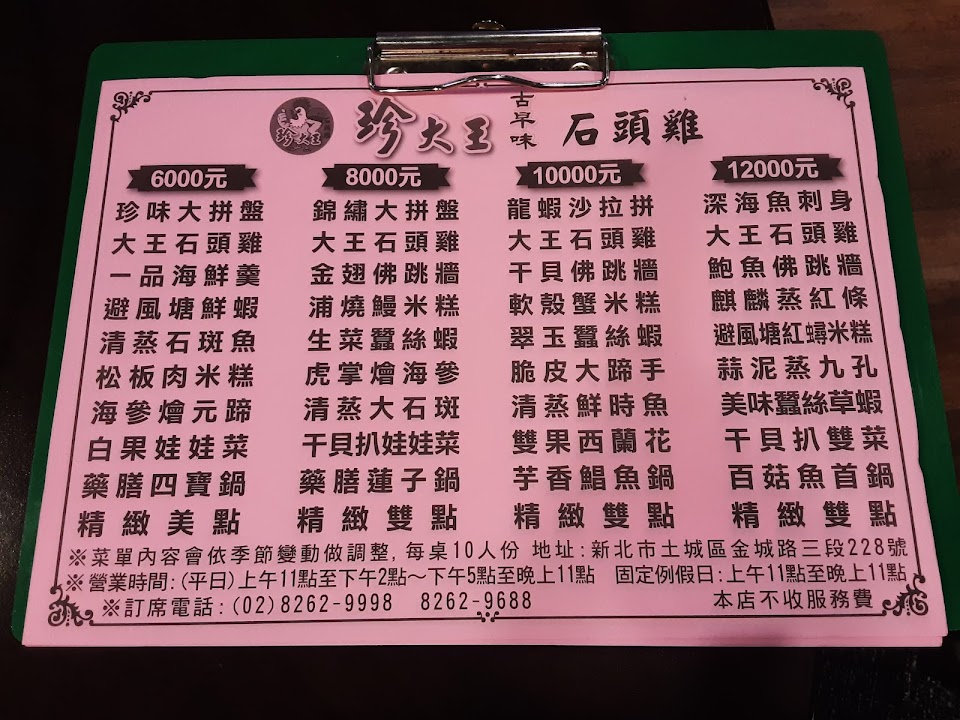 珍大王
珍大王 古早味 石頭雞
6000元
珍味大拼盤
大王石頭雞
一品海鮮羹
避風塘鮮蝦
清蒸石斑魚
松板肉米糕
海參燴元蹄
白果娃娃菜
藥膳四寶鍋
精緻美點
8000元
錦繡大拼盤
大王石頭雞
金翅佛跳牆
浦燒鰻米糕
生菜蠶絲蝦
虎掌燴海參
清蒸大石斑
干貝扒娃娃菜
藥膳蓮子鍋
精緻雙點
10000元
龍蝦沙拉拼
大王石頭雞
干貝佛跳牆
軟殼蟹米糕
翠玉蠶絲蝦
脆皮大蹄手
清蒸鮮時魚
雙果西蘭花
芋香鯧魚鍋
精緻雙點
12000元
深海魚刺身
大王石頭雞
鮑魚佛跳牆
麒麟蒸紅條
避風塘紅蟳米糕
蒜泥蒸九孔
美味蠶絲草蝦
干貝扒雙菜
百菇魚首鍋
精緻雙點
※菜單內容會依季節變動做調整, 每桌10人份 地址: 新北市土城區金城路三段228號
※營業時間: (平日)上午11點至下午2點～下午5點至晚上11點 固定例假日: 上午11點至晚上11點
※訂席電話: (02)8262-9998 8262-9688 本店不收服務費